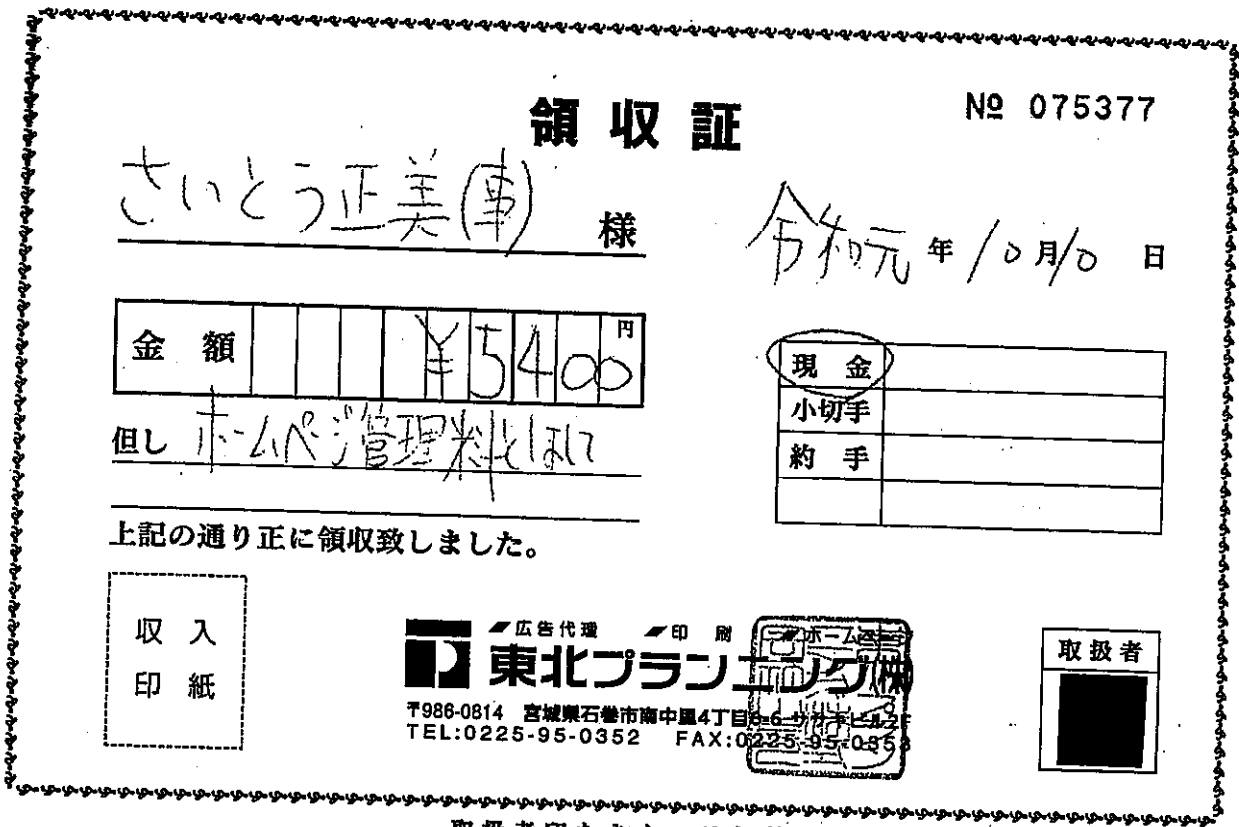 領収証
№ 075377
さいとう正美(事) 様
令和元年10月10日
金額 ¥5400円
現金
小切手
約手
但し ホームページ管理料として
上記の通り正に領収致しました。
収入
印紙
広告代理 印刷 ホームページ
東北プランニング(株)
〒986-0814 宮城県石巻市南中里4丁目6-6 ササキビル2F
TEL:0225-95-0352 FAX:0225-95-0353
取扱者